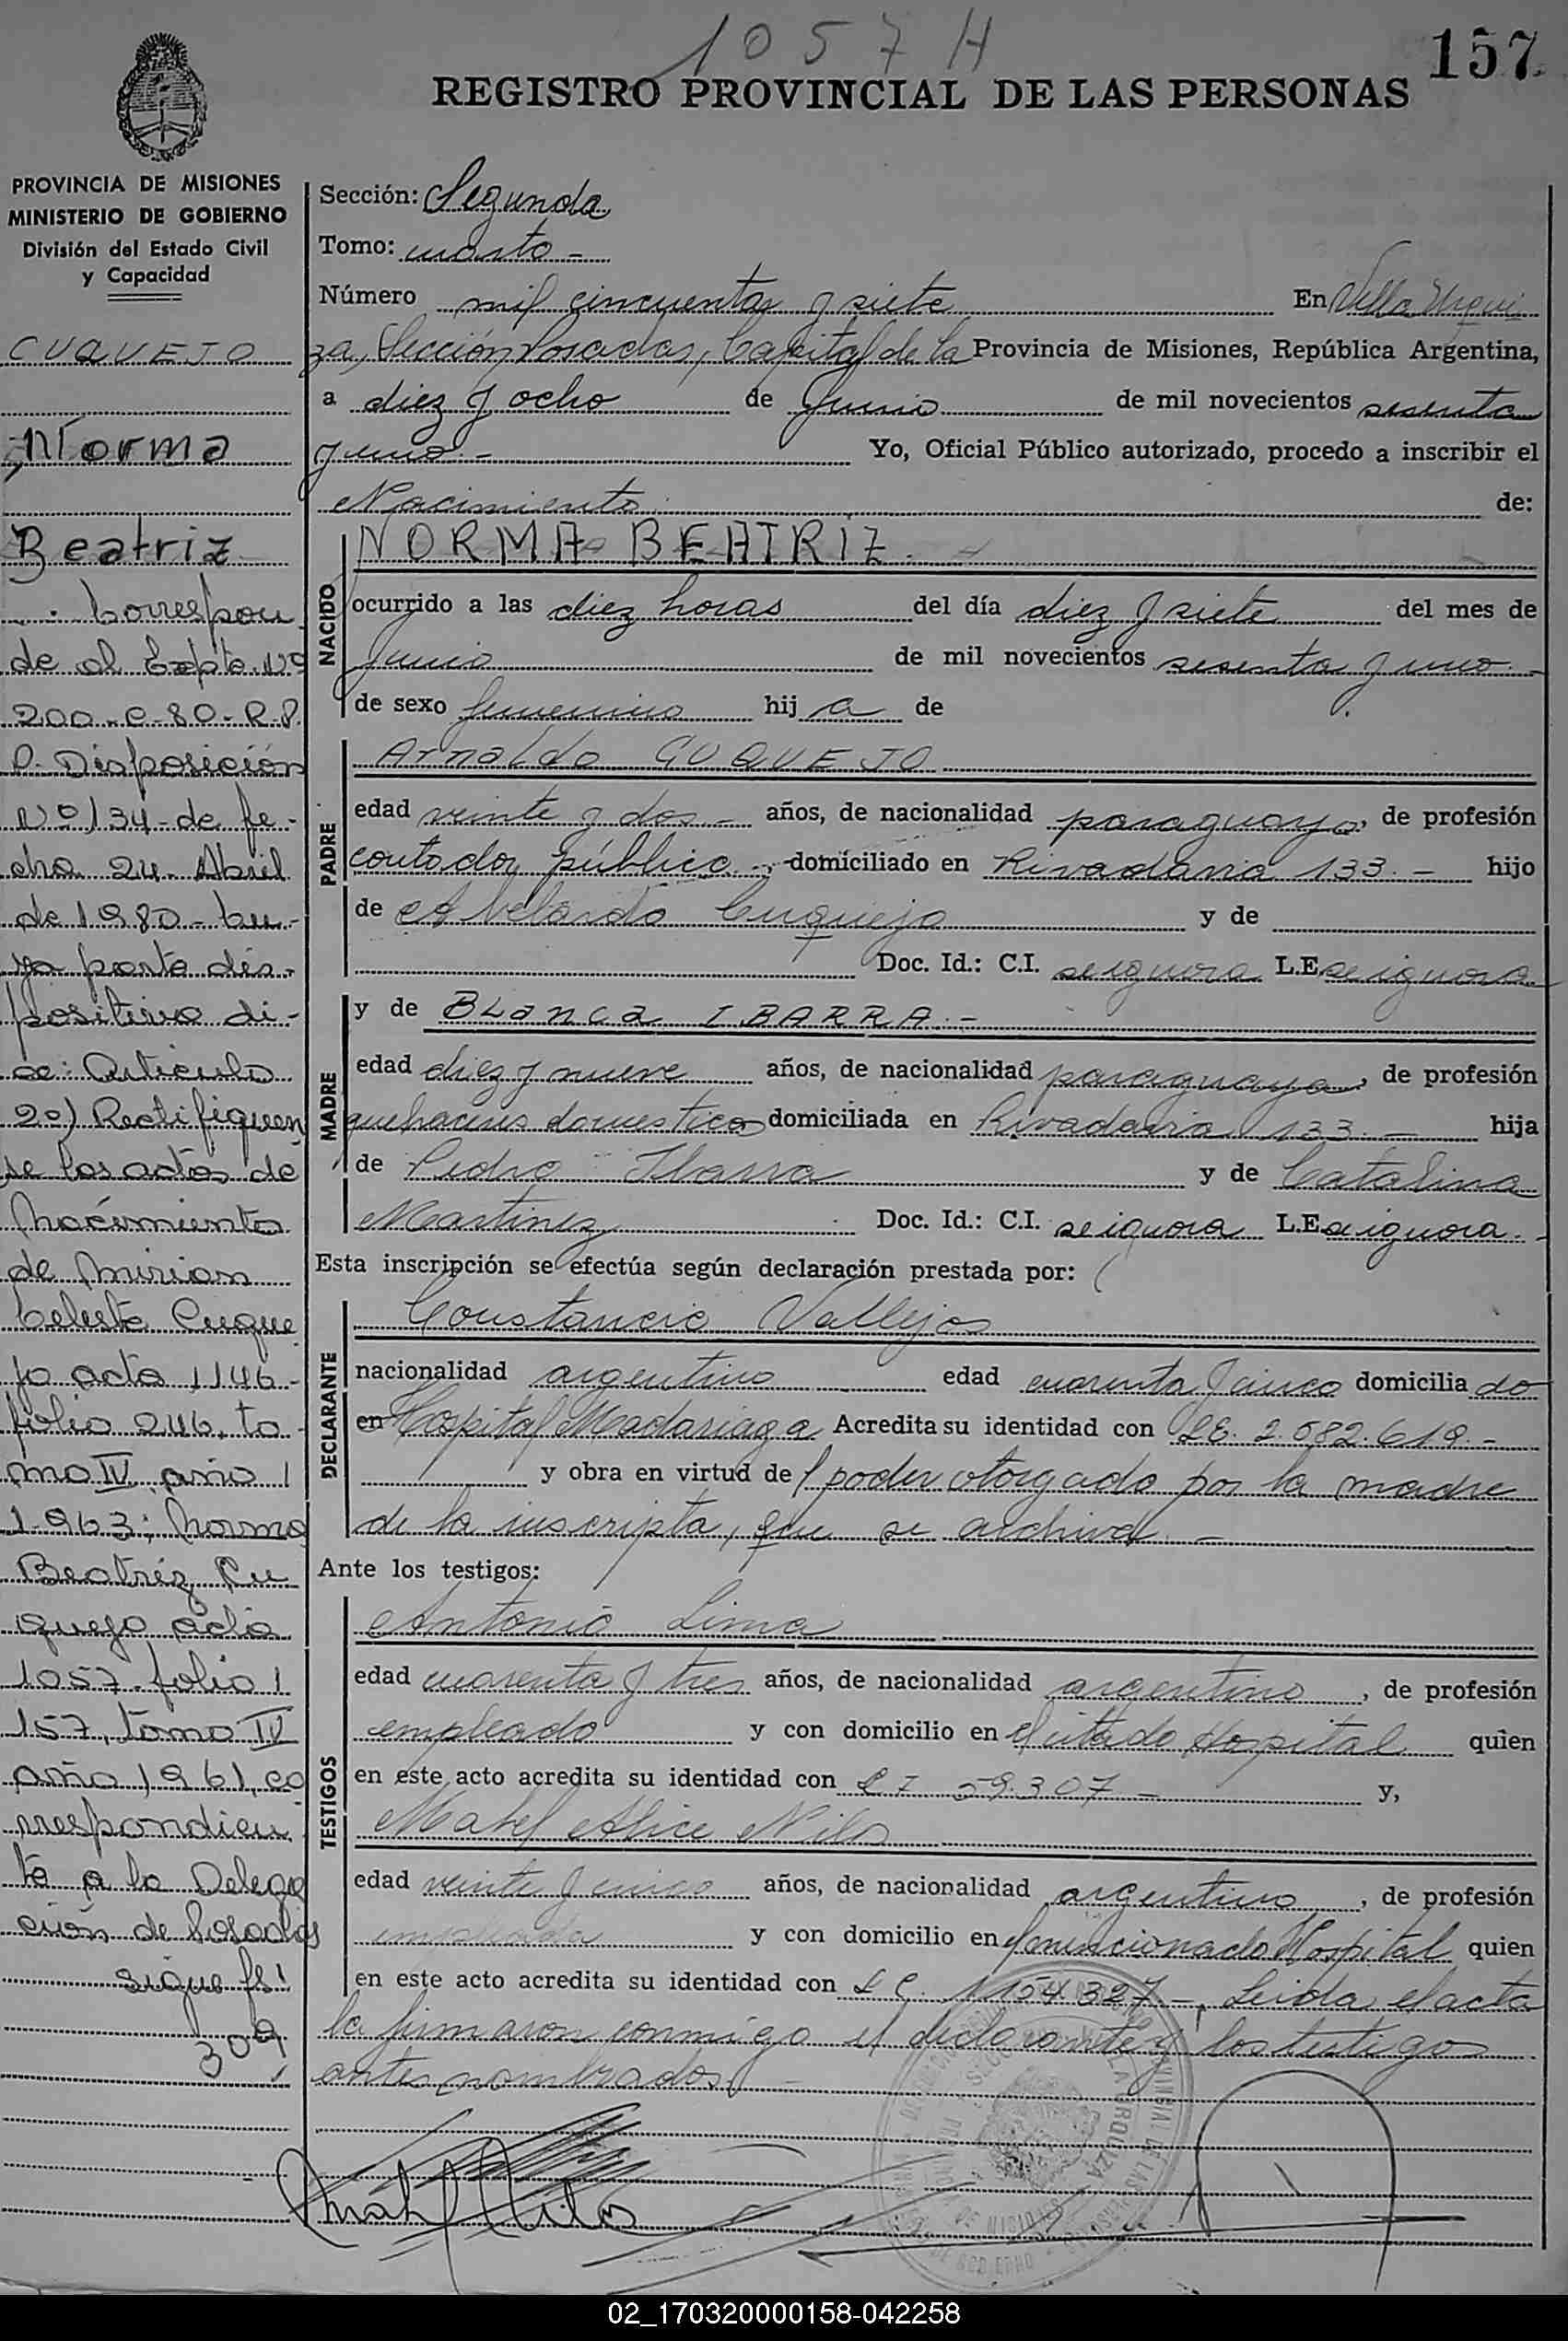 1057 H
157
REGISTRO PROVINCIAL DE LAS PERSONAS
PROVINCIA DE MISIONES
MINISTERIO DE GOBIERNO
División del Estado Civil
y Capacidad
CUQUEJO
Norma
Beatriz
Correspon
de al Expte. Nº
200-C-80-R.P.
P. Disposición
Nº 134 de fe-
cha 24 Abril
de 1980 - cu-
ya parte dis-
positiva di-
ce: Artículo
2º) Rectifíquen
se las actas de
Nacimiento
de Mirian
Celeste Cuque
jo acta 1146-
folio 246, to-
mo IV año
1963; Norma
Beatríz Cu
quejo acta
1057 folio
157, tomo IV
año 1961, co
rrespondien
te a la Delega
ción de Posadas
sigue fs!
309
Sección: Segunda
Tomo: cuarto -
Número mil cincuenta y siete En Villa Urqui
za, Sección Posadas, Capital de la Provincia de Misiones, República Argentina,
a diez y ocho de Junio de mil novecientos sesenta
y uno.- Yo, Oficial Público autorizado, procedo a inscribir el
Nacimiento de:
NACIDO
NORMA BEATRIZ.
ocurrido a las diez horas del día diez y siete del mes de
Junio de mil novecientos sesenta y uno.-
de sexo femenino hij a de
PADRE
Arnaldo CUQUEJO
edad veinte y dos - años, de nacionalidad paraguayo, de profesión
contador público.-, domiciliado en Rivadavia 133.- hijo
de Abelardo Cuquejo y de
Doc. Id.: C.I. se ignora L.E. se ignora
MADRE
y de BLanca IBARRA.-
edad diez y nueve años, de nacionalidad paraguaya, de profesión
quehaceres domesticos domiciliada en Rivadavia 133.- hija
de Pedro Ibarra y de Catalina
Martinez Doc. Id.: C.I. se ignora L.E. se ignora.-
Esta inscripción se efectúa según declaración prestada por:
DECLARANTE
Constancio Vallejos
nacionalidad argentino edad cuarenta y cinco domicilia do
en Hospital Madariaga Acredita su identidad con LE. 2.582.619.-
y obra en virtud de poder otorgado por la madre
de la inscripta, que se archiva.-
Ante los testigos:
TESTIGOS
Antonio Lima
edad cuarenta y tres años, de nacionalidad argentino, de profesión
empleado y con domicilio en el citado Hospital quien
en este acto acredita su identidad con C I 59.307 - y,
Mabel Alice Nilo
edad veinte y cinco años, de nacionalidad argentina, de profesión
empleada y con domicilio en el mencionado Hospital quien
en este acto acredita su identidad con L C. 1154.327 -, Leida el acta
la firmaron conmigo el declarante y los testigos
antes nombrados.
02_170320000158-042258